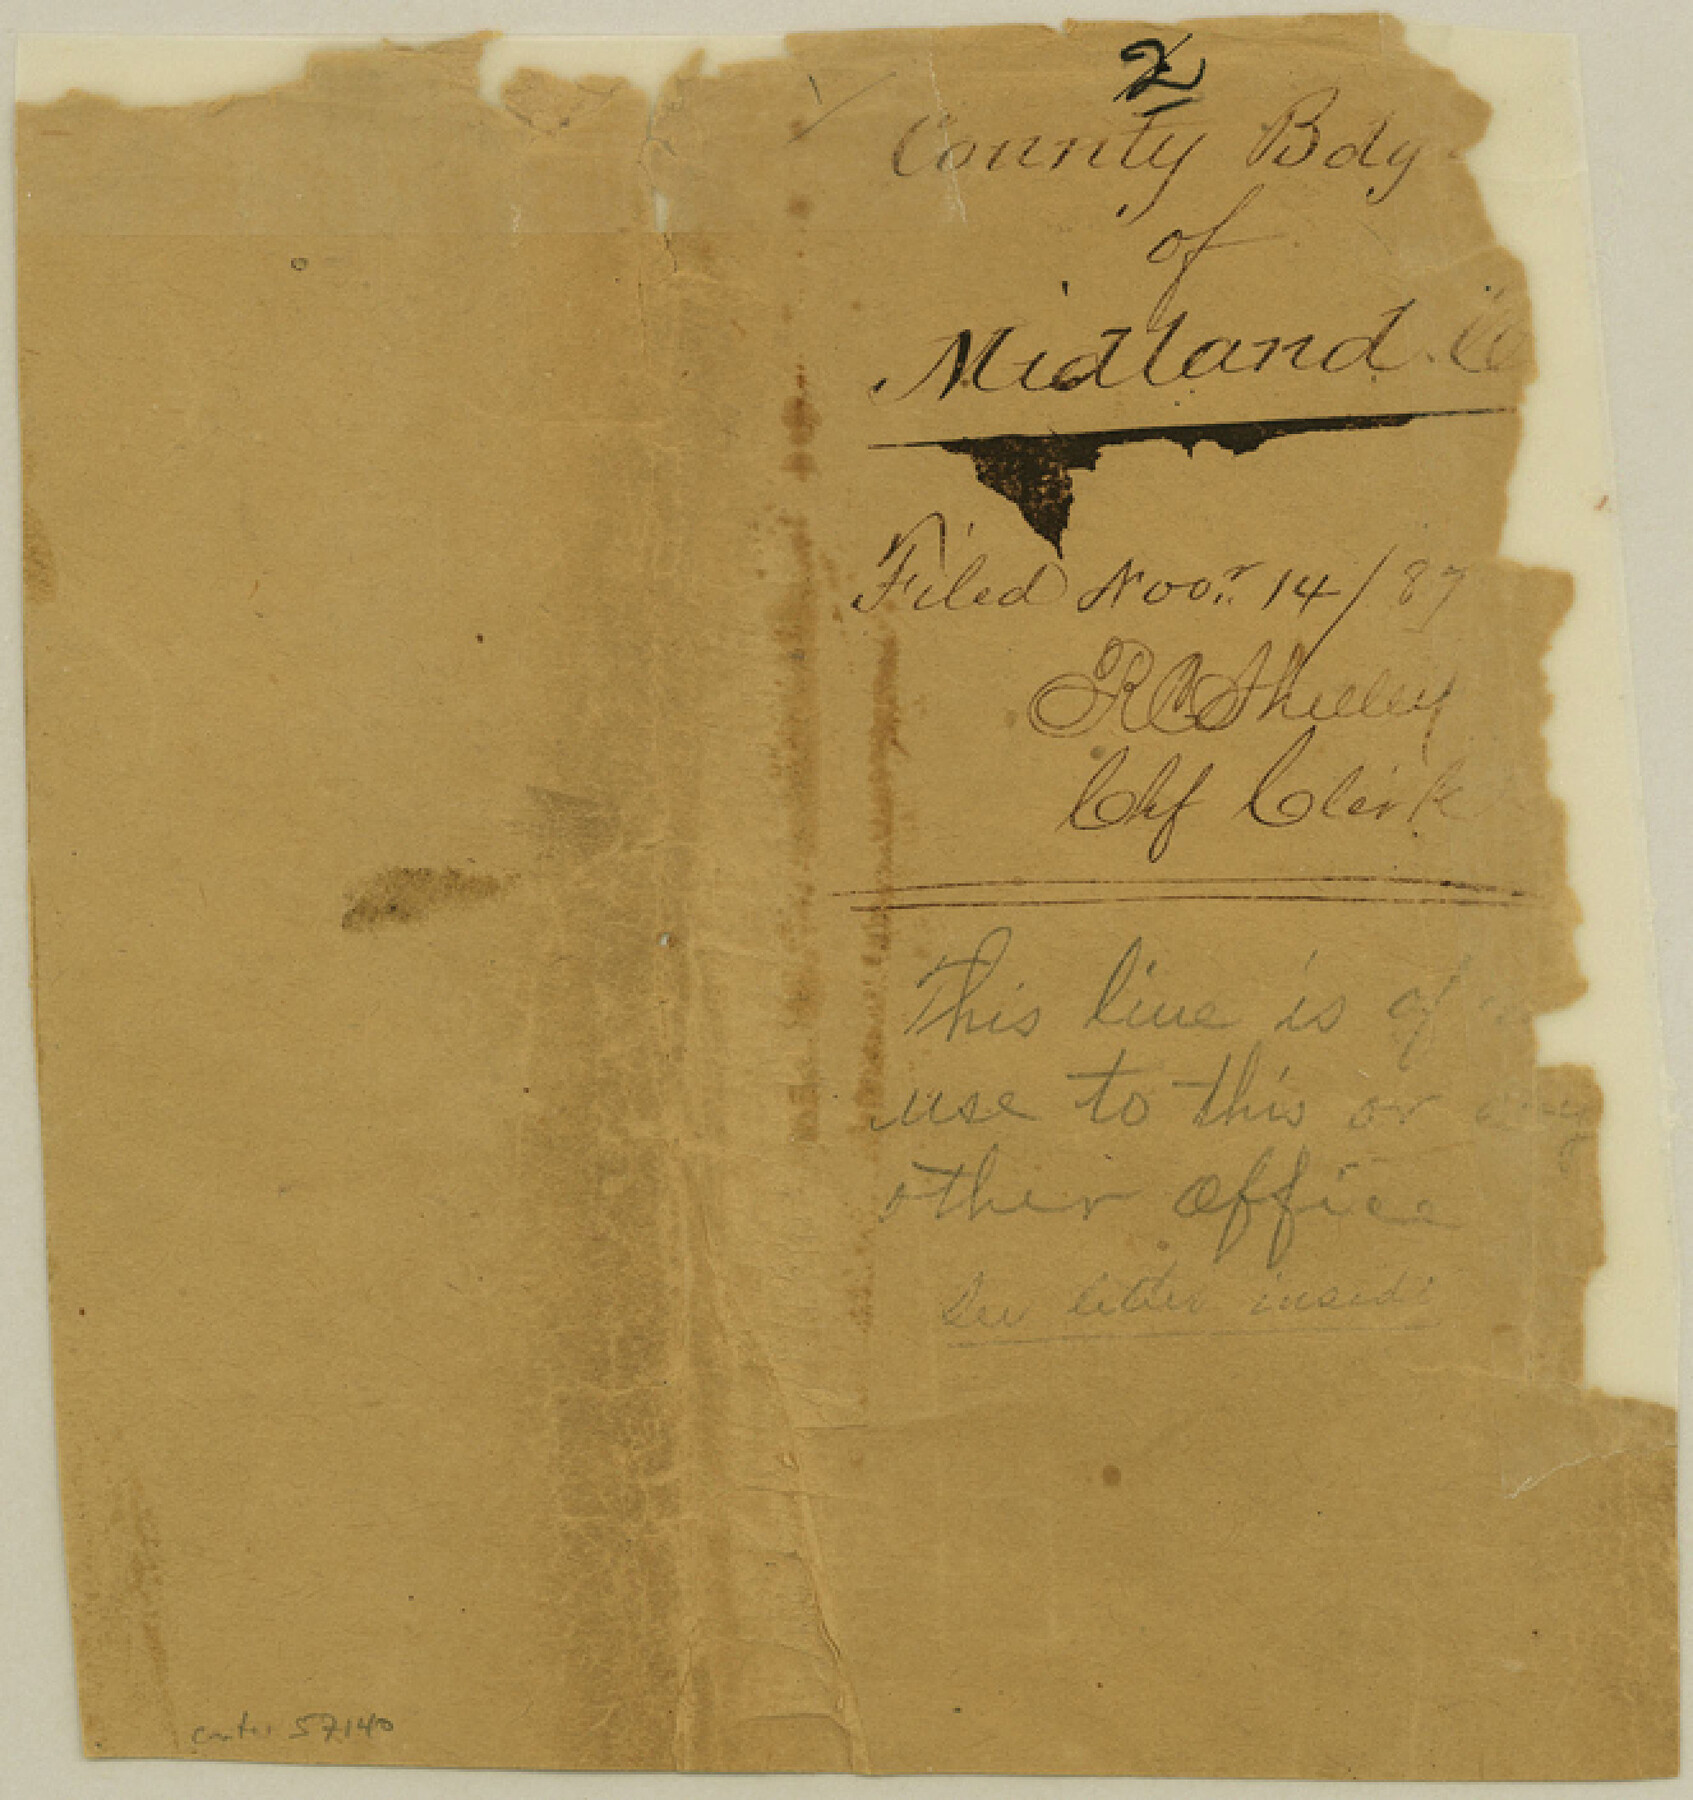 2
County Bdy
of
Midland Co
Filed Novr 14/87
R C Shelley
Chf Clerk
This line is of
use to this or any
other office
See letter inside
counter 57140